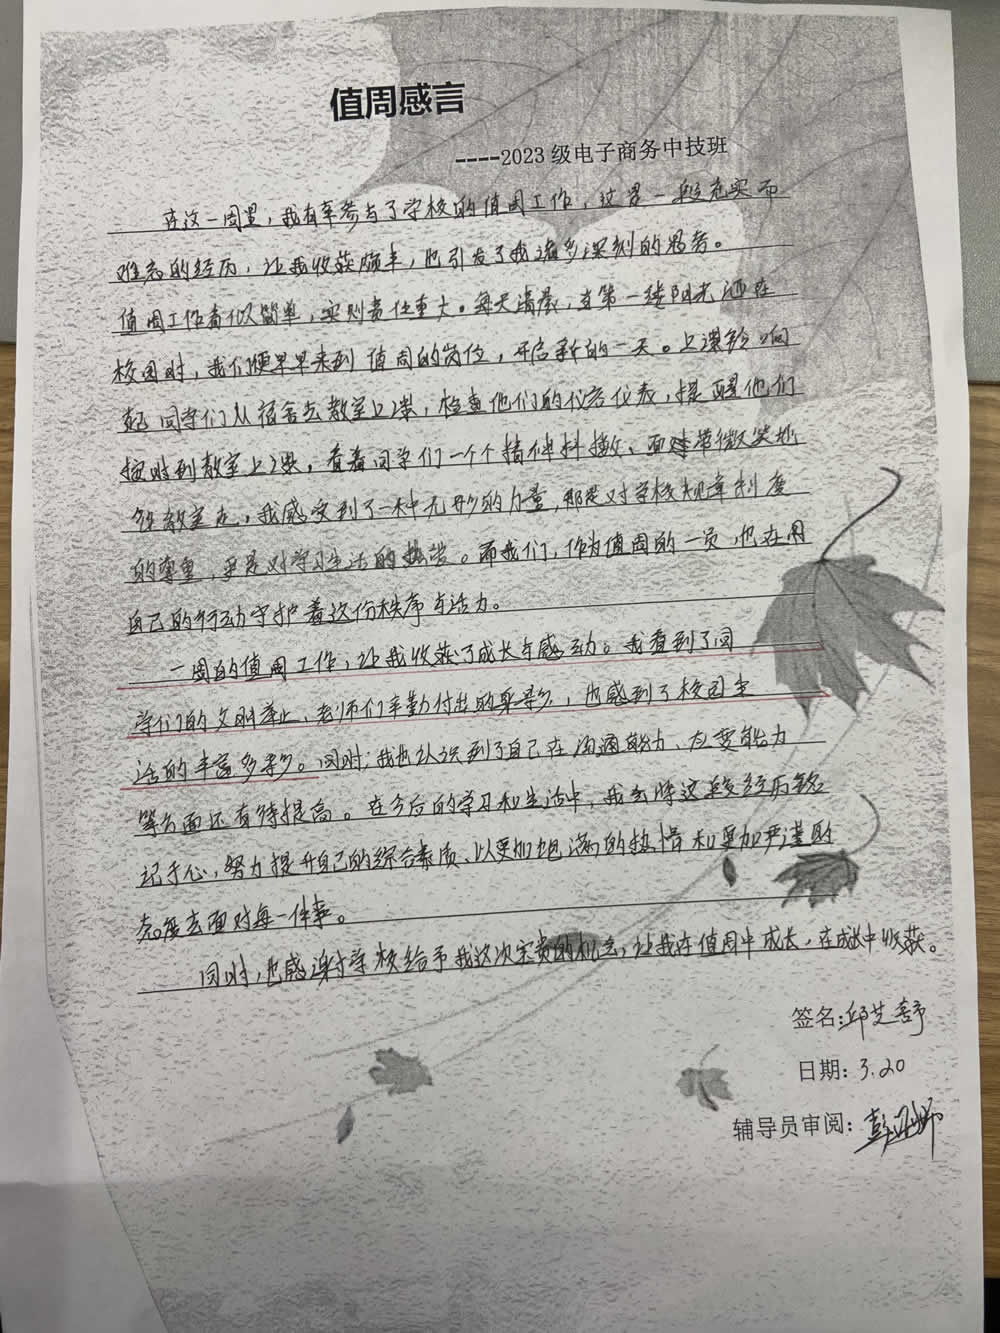 值周感言
----2023级电子商务中技班
在这一周里，我有幸参与了学校的值周工作，这是一段充实而
难忘的经历，让我收获颇丰，也引发了我诸多深刻的思考。
值周工作看似简单，实则责任重大。每天清晨，当第一缕阳光洒在
校园时，我们便早早来到值周的岗位，开启新的一天。上课铃响
起同学们从宿舍去教室上课，检查他们的仪容仪表，提醒他们
按时到教室上课，看着同学们一个个精神抖擞、面带微笑地
往教室走，我感受到了一种无形的力量，那是对学校规章制度
的尊重，更是对学习生活的热爱。而我们，作为值周的一员，也在用
自己的行动守护着这份秩序与活力。
一周的值周工作，让我收获了成长与感动。我看到了同
学们的文明举止、老师们辛勤付出的身影，也感到了校园生
活的丰富多彩。同时，我也认识到了自己在沟通能力、应变能力
等方面还有待提高。在今后的学习和生活中，我会将这段经历铭
记于心，努力提升自己的综合素质、以更加饱满的热情和更加严谨的
态度去面对每一件事。
同时，也感谢学校给予我这次宝贵的机会，让我在值周中成长，在成长中收获。
签名：邱芝
日期：3.20
辅导员审阅：彭